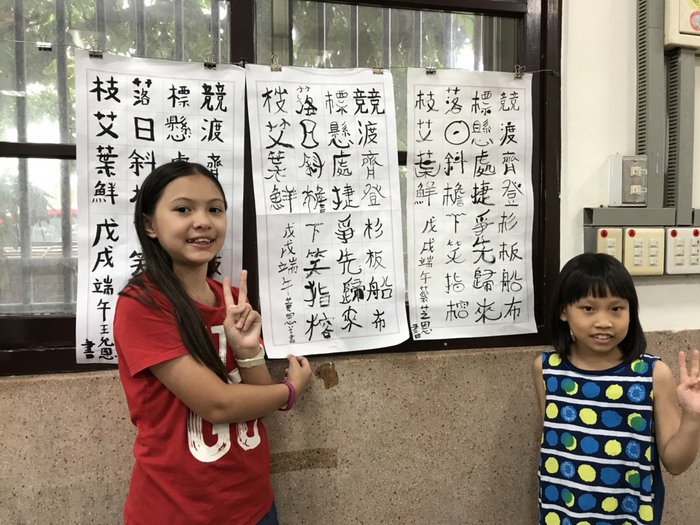 競渡齊
標懸處
落日斜 笑
枝艾葉鮮 戊戌端午 王 恩 書
競渡齊登杉板船布
標懸處捷爭先歸來
落日斜檐下笑指榕
枝艾葉鮮 戊戌端午 恩 書
競渡齊登杉板船布
標懸處捷爭先歸來
落日斜檐下笑指榕
枝艾葉鮮 戊戌端午 葉芝恩 書